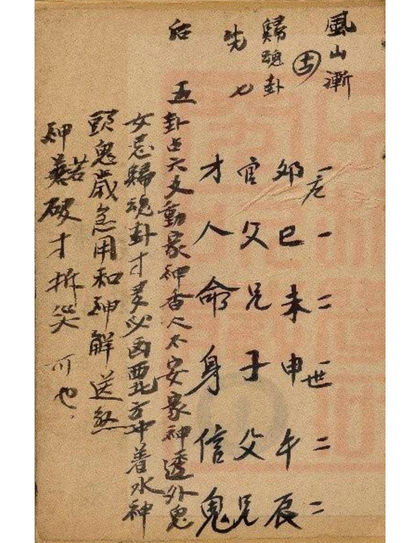 風山漸
歸魂卦
吉
先七
后五
一應一二一世二二
卯巳未申午辰
官父兄子父兄
才人命身信鬼
卦占六爻動家神香火不安家神透外鬼
女忌歸魂卦才多必西北方中着水神
頭鬼歲急用和神解送煞
神若破才拆災可也